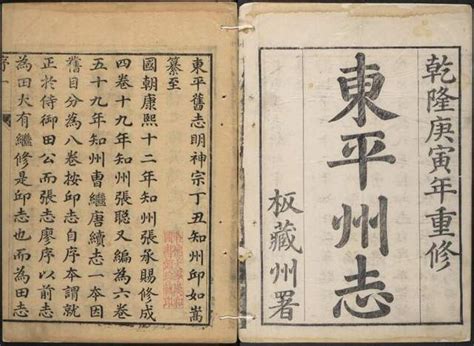 乾隆庚寅年重修
東平州志
板藏州署
東平舊志明神宗丁丑知州邱如嵩
纂至
國朝康熙十二年知州張承賜修成
四卷十九年知州張聰又編為六卷
五十九年知州曹繼唐續志一本因
舊目分為八卷按邱志自序本謂就
正於侍御田公而張志廖序以前志
為田大有繼修是邱志也而為田志
序一